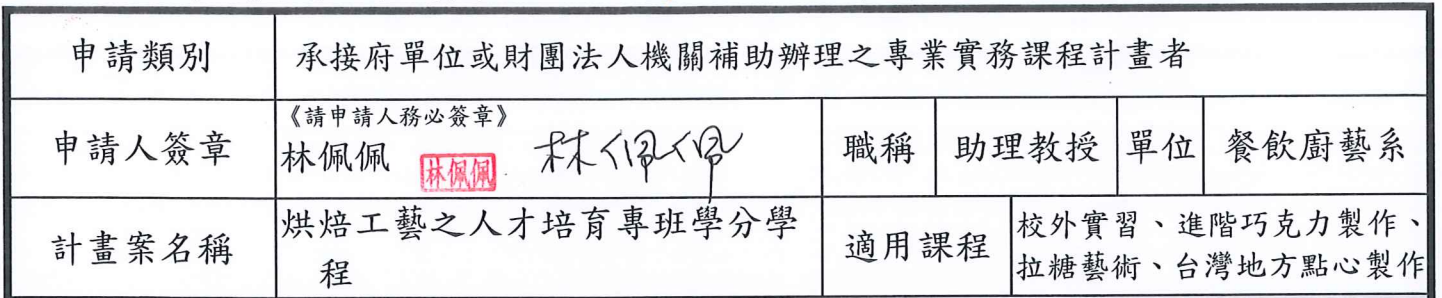 申請類別 承接府單位或財團法人機關補助辦理之專業實務課程計畫者
申請人簽章 《請申請人務必簽章》
林佩佩 林佩佩 林佩佩 職稱 助理教授 單位 餐飲廚藝系
計畫案名稱 烘焙工藝之人才培育專班學分學
程
適用課程 校外實習、進階巧克力製作、
拉糖藝術、台灣地方點心製作